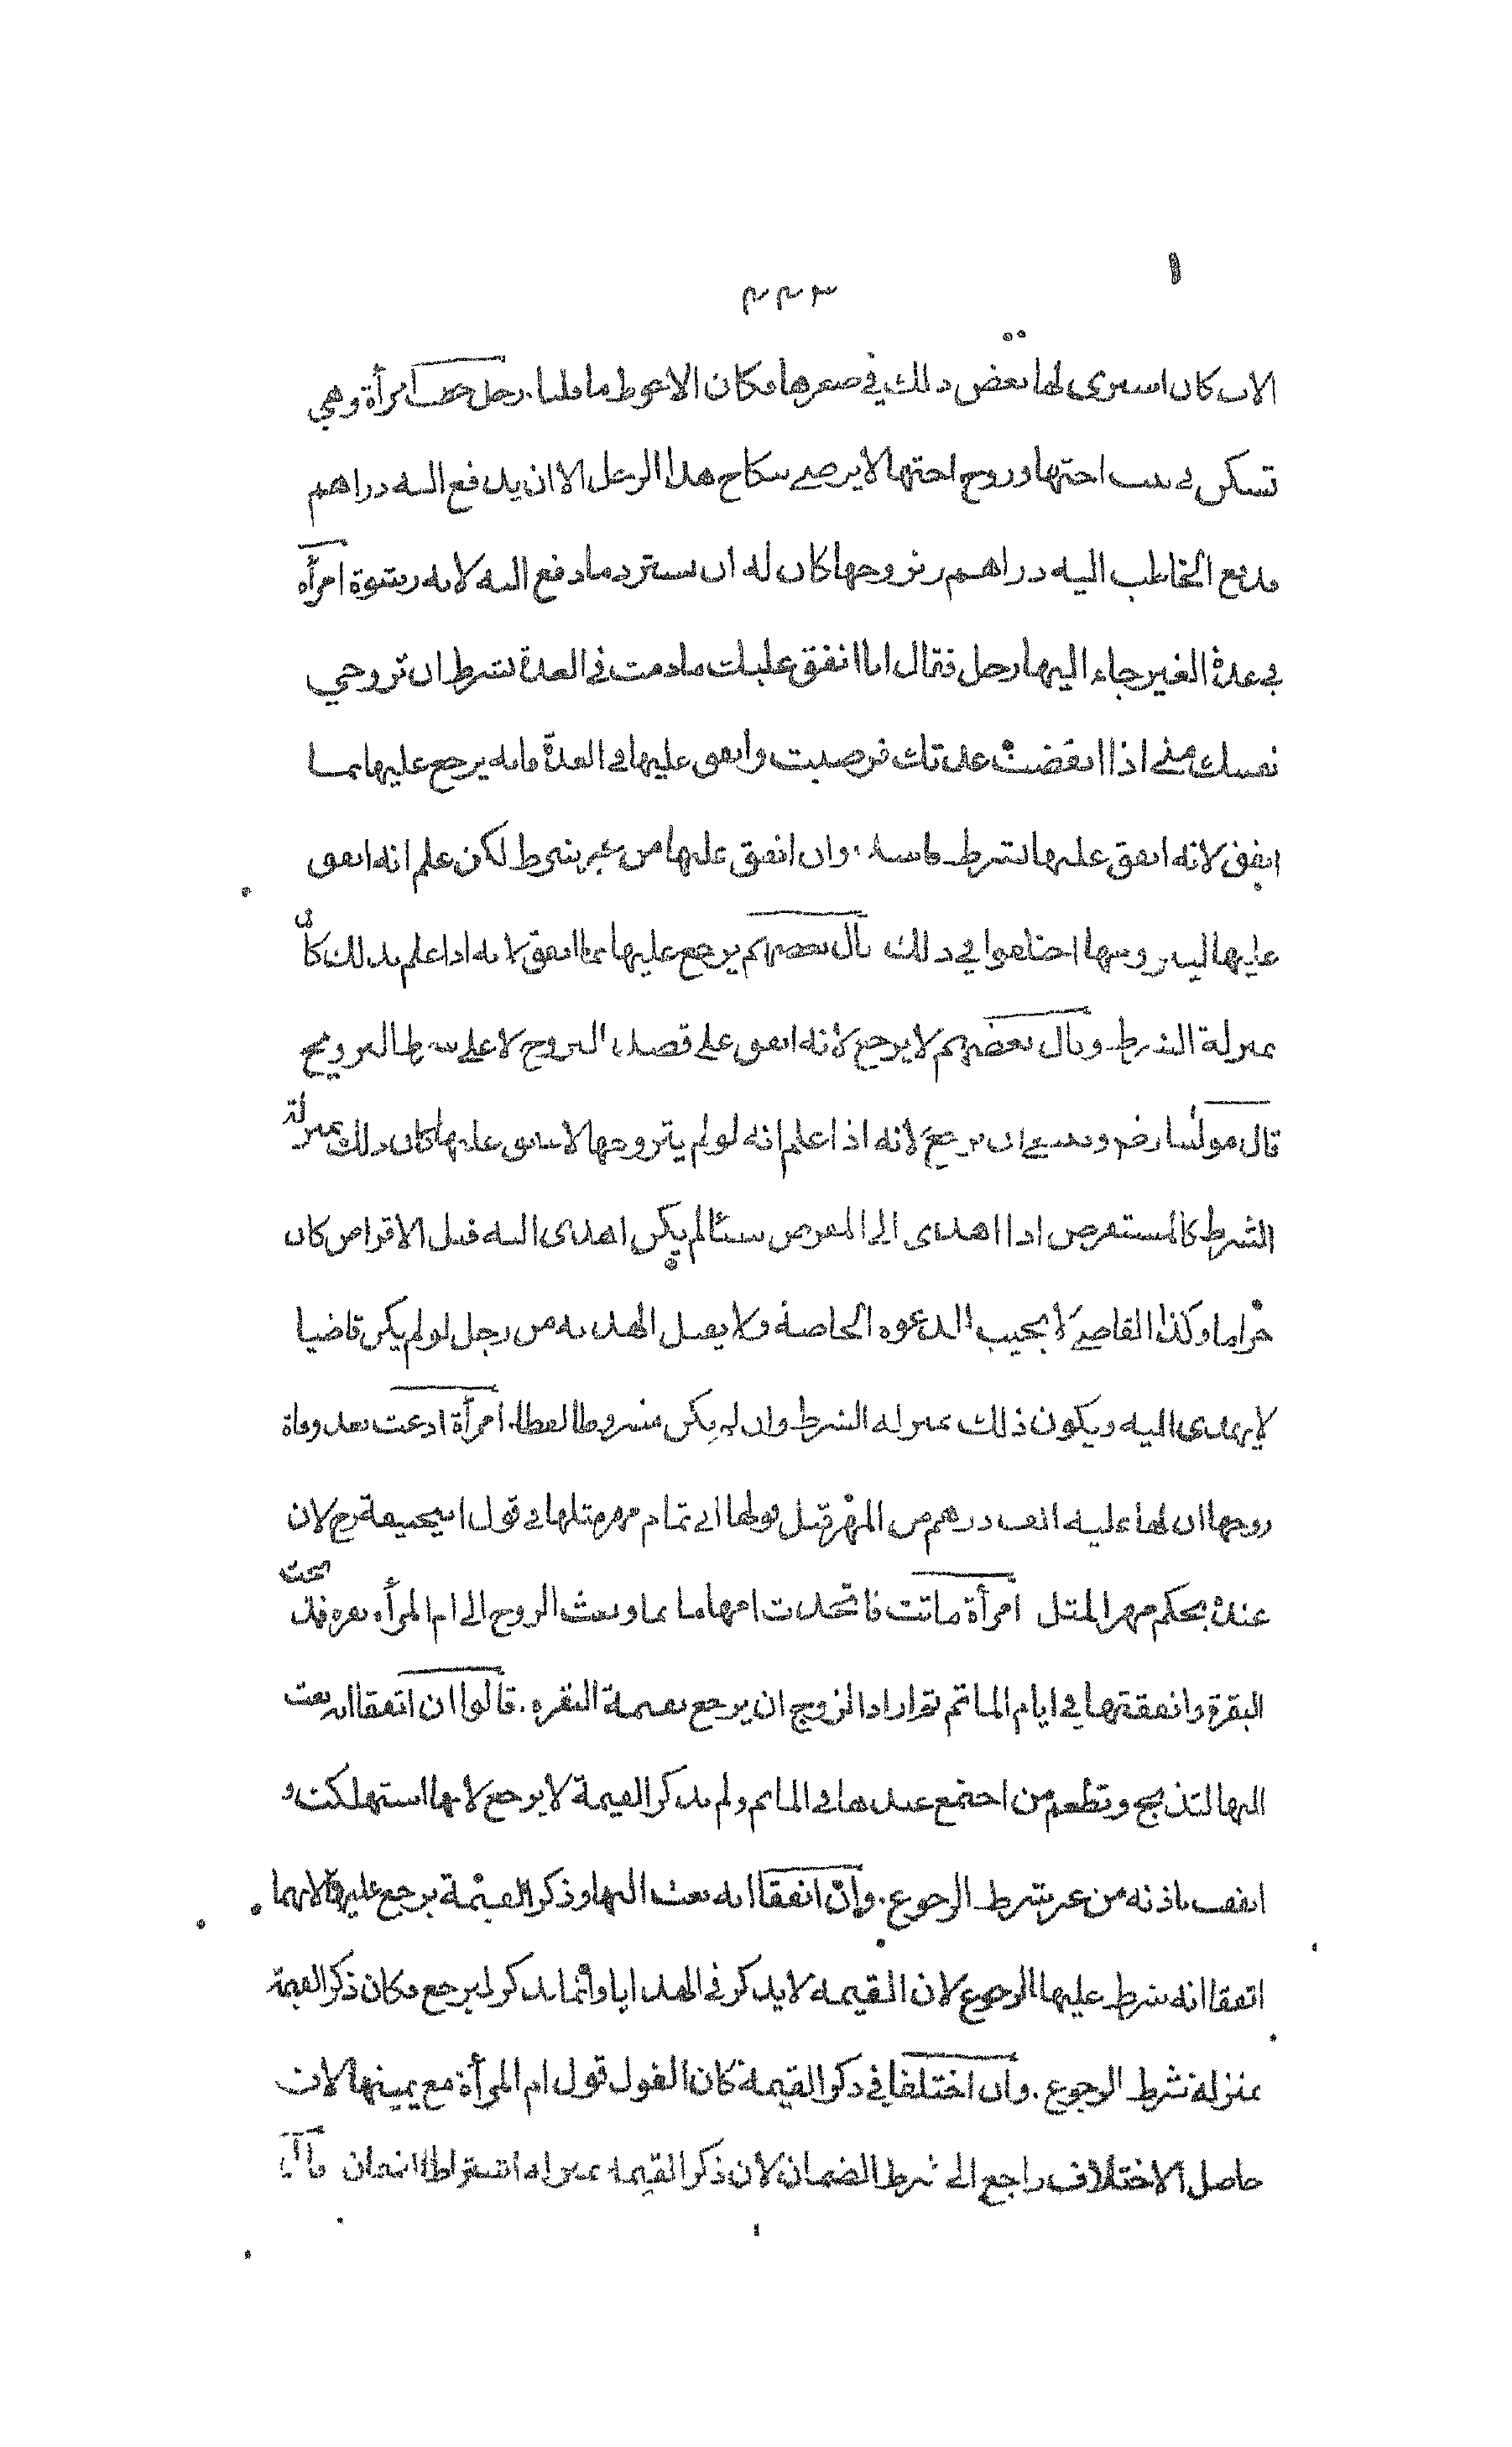 ٣٢٢
الاب كان اشترى لها بعض ذلك في صغرها فكان الاحوط ما قلنا . رجل خطب امرأة وهي
تسكن في بيت اختها وزوج اختها لا يرضى بنكاح هذا الرجل الا ان يدفع اليه دراهم
فدفع الخاطب اليه دراهم وتزوجها كان له ان يسترد ما دفع اليه لانه رشوة امرأة
في عدة الغير جاء اليها رجل فقال انا انفق عليك ما دمت في العدة بشرط ان تزوجي
نفسك مني اذا انقضت عدتك فرضيت وانفق عليها في العدة فانه يرجع عليها بما
انفق لانه انفق عليها بشرط فاسد . وان انفق عليها من غير شرط لكن علم انه انفق
عليها ليتزوجها اختلفوا في ذلك قال بعضهم يرجع عليها بما انفق لانه اذا علم بذلك كان
بمنزلة الشرط وقال بعضهم لا يرجع لانه انفق على قصد التزوج لا على شرط التزويج
قال مولنا رضه وينبغي ان يرجع لانه اذا علم انه لو لم يتزوجها لا ينفق عليها كان ذلك بمنزلة
الشرط كالمستقرض اذا اهدى الى المقرض شيئا لم يكن اهدى اليه قبل الاقراض كان
حراما وكذا القاضي لا يجيب الدعوة الخاصة ولا يقبل الهدية من رجل لو لم يكن قاضيا
لا يهدى اليه ويكون ذلك بمنزلة الشرط وان لم يكن مشروطا لفظا . امرأة ادعت بعد وفاة
زوجها ان لها عليه الف درهم من المهر قبل قولها الى تمام مهر مثلها في قول ابيحنيفة رح لان
عنده يحكم مهر المثل امرأة ماتت فاتخذت امها ماتما وبعث الزوج الى ام المرأة بقرة فذبحت
البقرة وانفقتها في ايام الماتم ثم اراد الزوج ان يرجع بقيمة البقرة . قالوا ان اتفقا انه بعث
اليها لتذبح وتطعم من اجتمع عندها في الماتم ولم يذكر القيمة لا يرجع لانها استهلكت و
انفقت باذنه من غير شرط الرجوع . وان اتفقا انه بعث اليها وذكر القيمة يرجع عليها لانهما
اتفقا انه شرط عليها الرجوع لان القيمة لا يذكر في الهدايا وانما يذكر ليرجع فكان ذكر القيمة
بمنزلة شرط الرجوع . وان اختلفا في ذكر القيمة كان القول قول ام المرأة مع يمينها لان
حاصل الاختلاف راجع الى شرط الضمان لان ذكر القيمة بمنزلة اشتراط الضمان